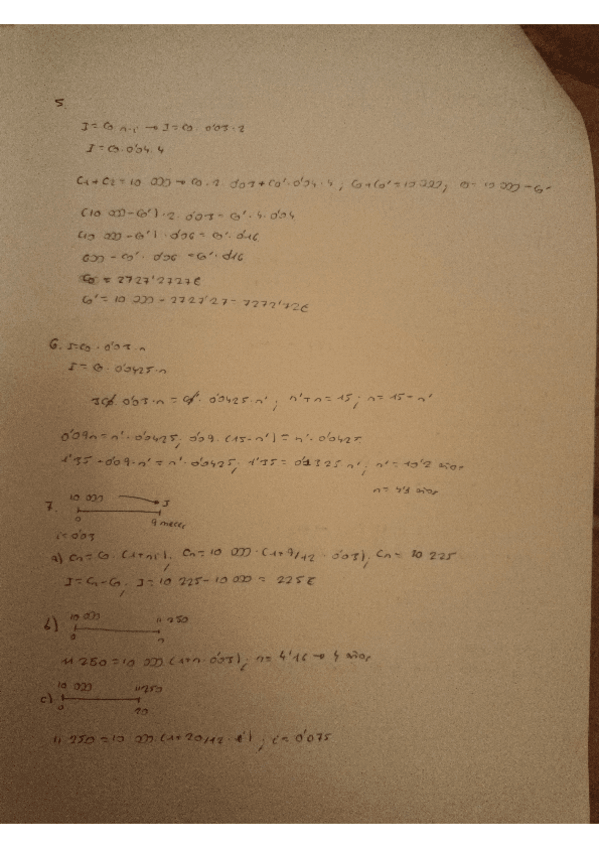 5.
I = C0 · n · i → I = C0 · 0'03 · 2
I = C0 · 0'04 · 4
C1 + C2 = 10 000 → C0 · 2 · 0'03 + C0' · 0'04 · 4 ; C0 + C0' = 10 000 ; C0 = 10 000 - C0'
(10 000 - C0') · 2 · 0'03 = C0' · 4 · 0'04
(10 000 - C0') · 0'06 = C0' · 0'16
600 - C0' · 0'06 = C0' · 0'16
C0 = 2727'2727€
C0' = 10 000 - 2727'27 = 7272'72€
6. I = C0 · 0'03 · n
I = C0 · 0'0425 · n
3C0 · 0'03 · n = C0 · 0'0425 · n' ; n' + n = 15 ; n = 15 - n'
0'09n = n' · 0'0425 ; 0'09 · (15 - n') = n' · 0'0425
1'35 - 0'09 · n' = n' · 0'0425 ; 1'35 = 0'1325 n' ; n' = 10'2 años
n = 4'8 años
7. 10 000 I
0 9 meses
i = 0'03
a) Cn = C0 · (1 + n · i) ; Cn = 10 000 · (1 + 9/12 · 0'03) ; Cn = 10 225
I = Cn - C0 ; I = 10 225 - 10 000 = 225€
b) 10 000 11 250
0 n
11 250 = 10 000 (1 + n · 0'03) ; n = 4'16 → 4 años
c) 10 000 11250
0 20
11 250 = 10 000 · (1 + 20/12 · i) ; i = 0'075